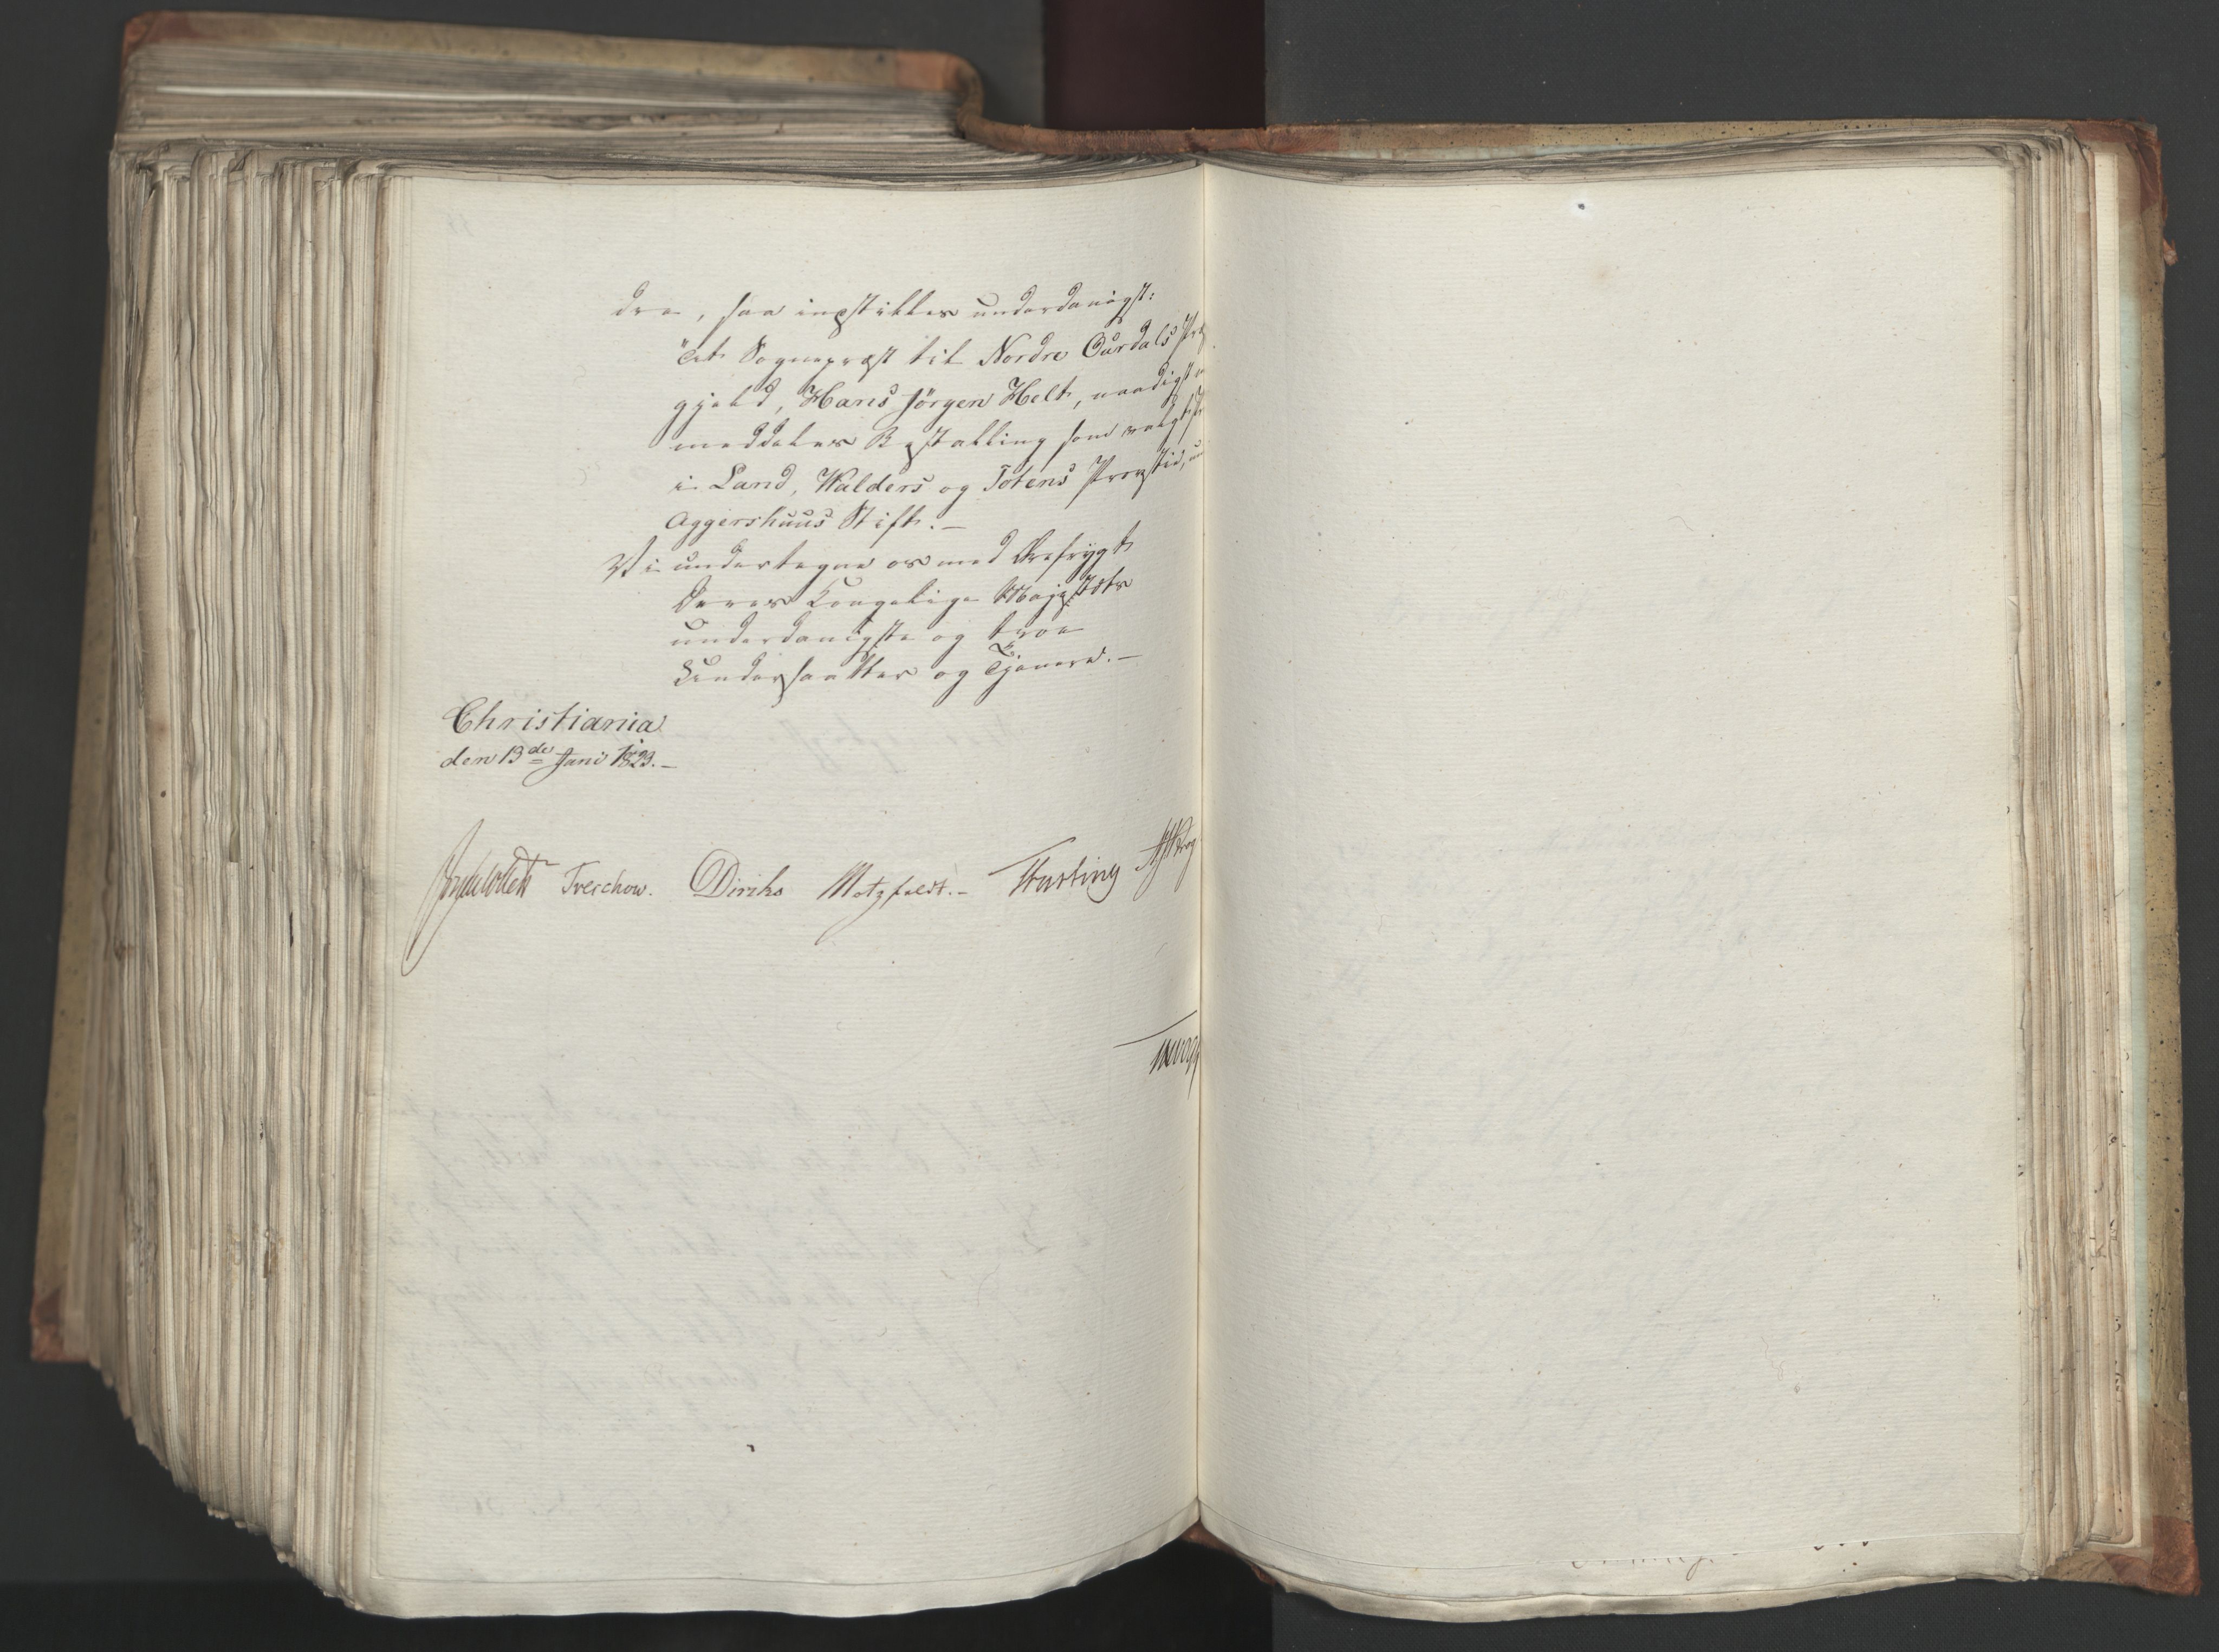 dre, saa indstilles underdanigst:
"at Sognepræst til Nordre Ourdals Præ
gjeld, Hans Jörgen Helt, naadigst
meddeles Bestalling som valgt
i Land, Walders og Totens Provstie,
Aggershuus Stift.—
Vi undertegne os med Ærefrygt
Deres Kongelige Majestæts
underdanigste og troe
Undersaatter og Tjenere.—
Christiania
den 13de Juni 1823.—
Treschow. Diriks Motzfeldt.— Fasting